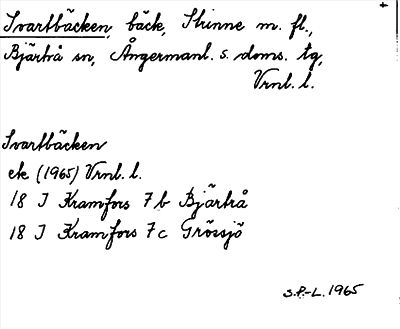 Svartbäcken, bäck, Skinne m. fl.,
Bjärtrå sn, Ångermanl. s. doms. tg,
Vrnl. l.
Svartbäcken
ek (1965) Vrnl. l.
18 I Kramfors 7 b Bjärtrå
18 I Kramfors 7 c Grössjö
S.P.-L. 1965